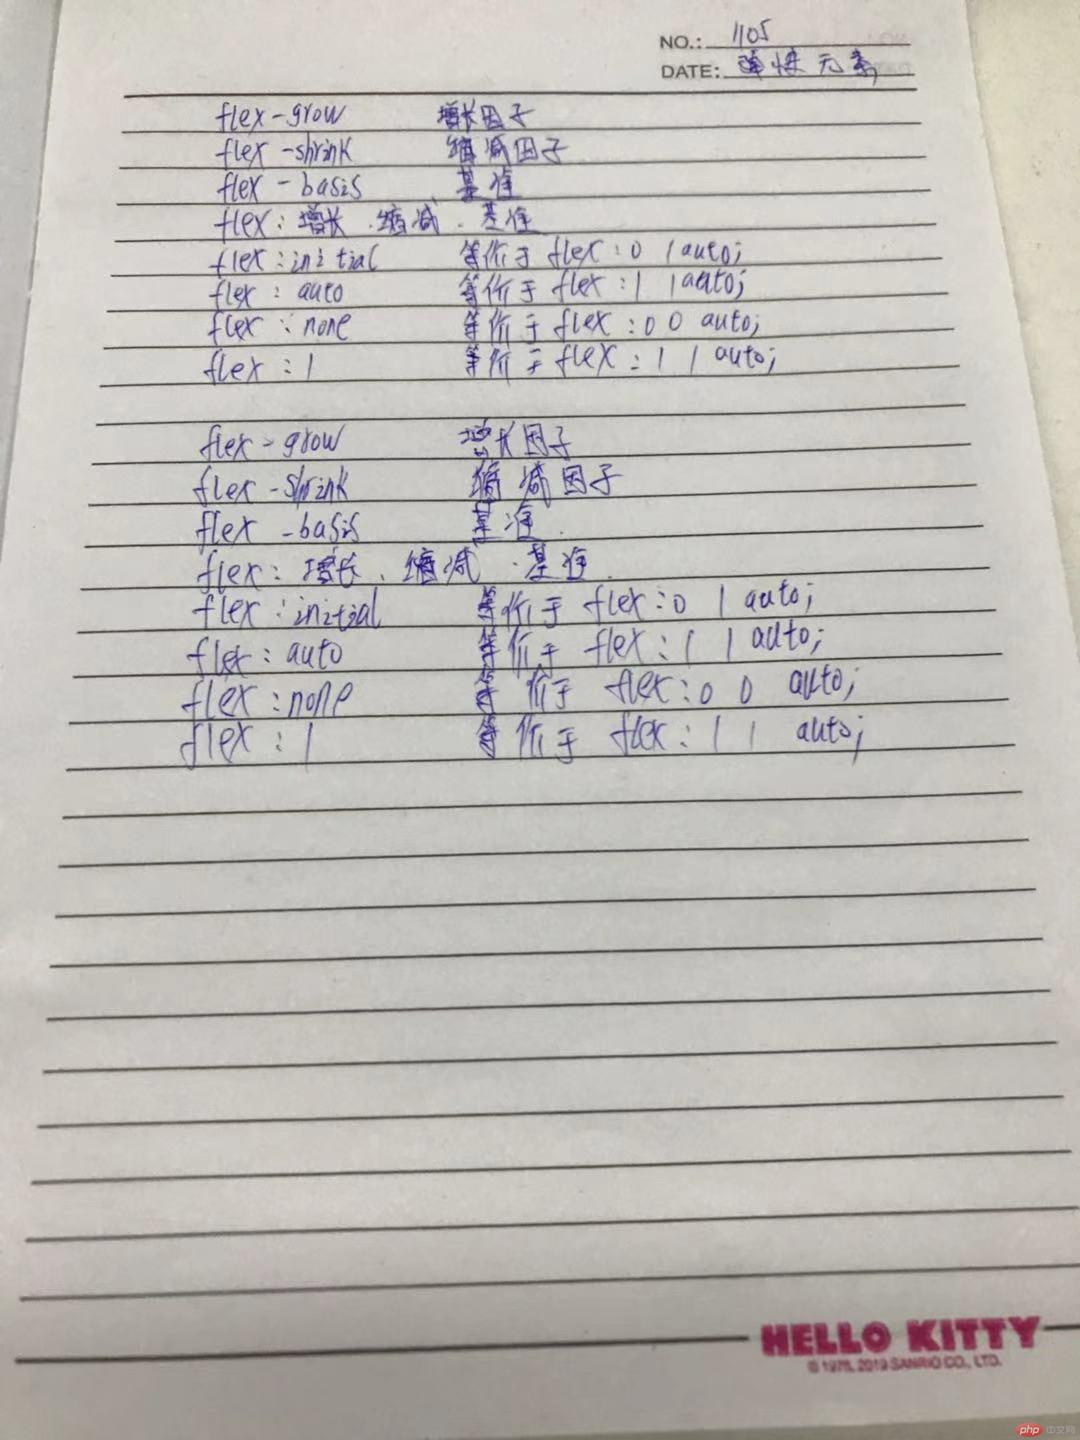 NO.: 1105
DATE: 弹性元素
flex-grow 增长因子
flex-shrink 缩减因子
flex-basis 基准
flex: 增长、缩减、基准
flex:initial 等价于 flex:0 1 auto;
flex: auto 等价于 flex:1 1 auto;
flex: none 等价于 flex:0 0 auto;
flex:1 等价于 flex:1 1 auto;
flex-grow 增长因子
flex-shrink 缩减因子
flex-basis 基准.
flex: 增长、缩减、基准.
flex:initial 等价于 flex:0 1 auto;
flex: auto 等价于 flex:1 1 auto;
flex:none 等价于 flex:0 0 auto;
flex:1 等价于 flex:1 1 auto;
HELLO KITTY
© 1976, 2019 SANRIO CO., LTD.
php 中文网